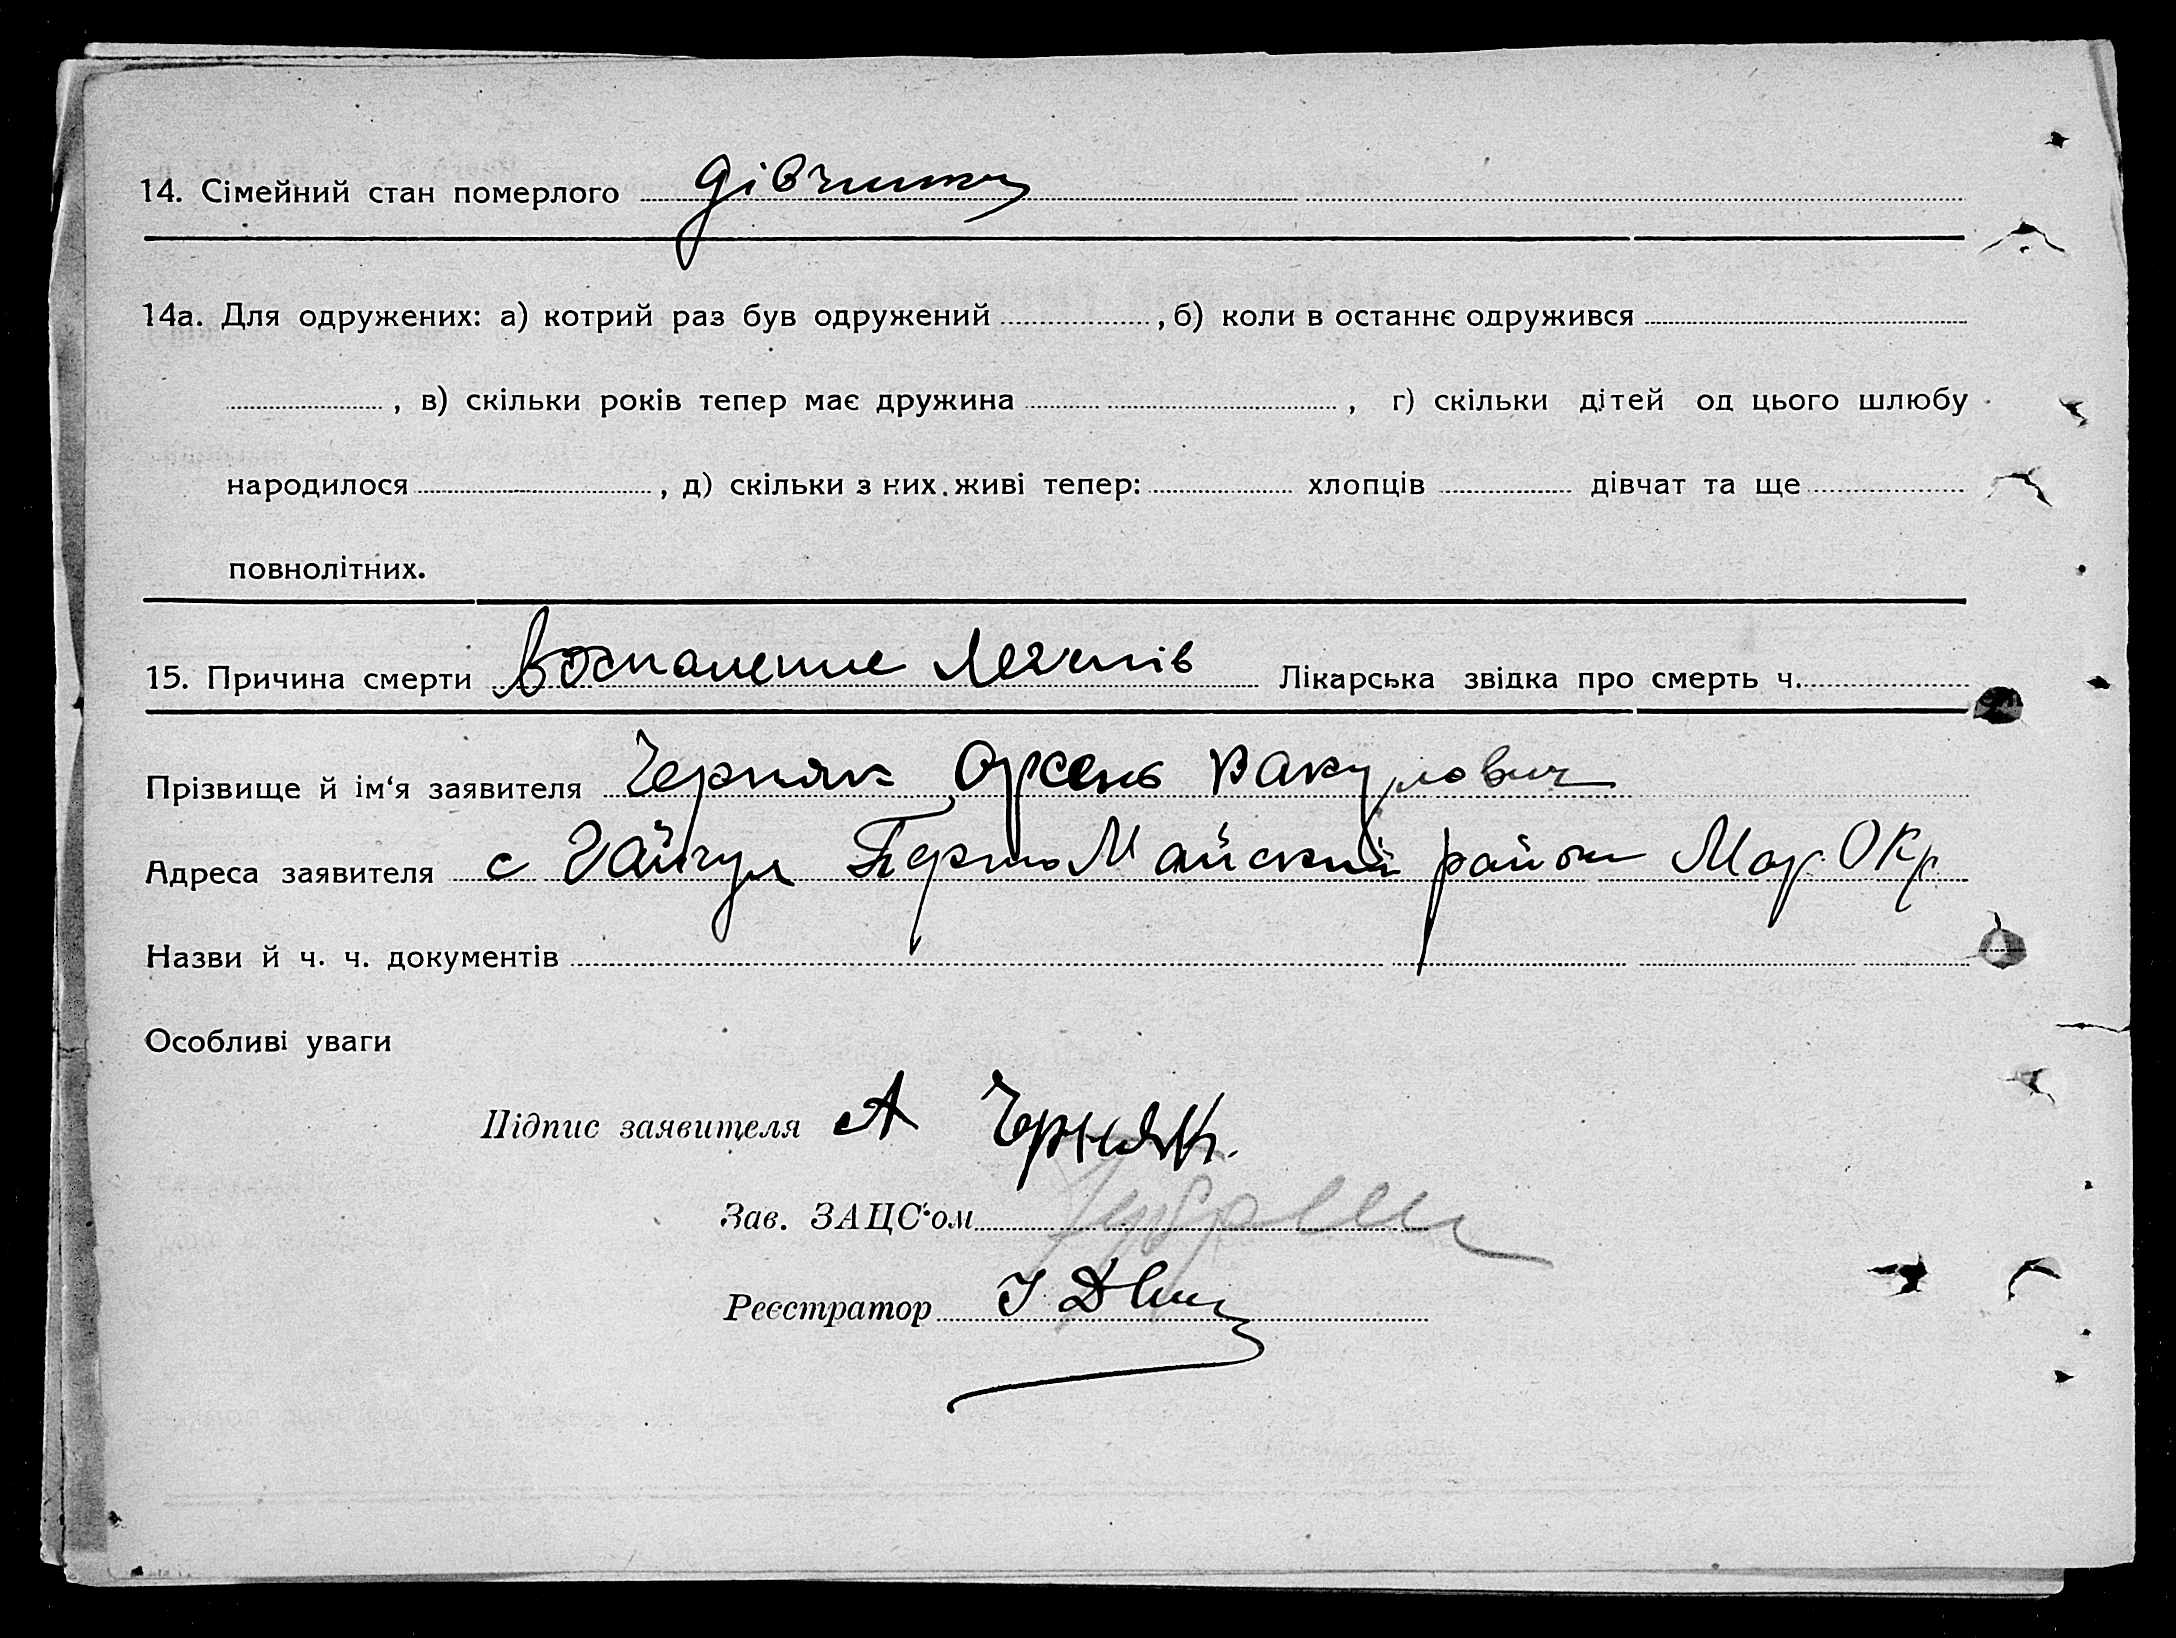 14. Сімейний стан померлого дівчинка
14а. Для одружених: а) котрий раз був одружений , б) коли в останнє одружився
, в) скільки років тепер має дружина , г) скільки дітей од цього шлюбу
народилося , д) скільки з них живі тепер: хлопців дівчат та ще
повнолітних.
15. Причина смерти воспаление легенів Лікарська звідка про смерть ч.
Прізвище й ім'я заявителя Черняк Арсень Вакулович
Адреса заявителя с Гайчул ПершоМайский район Мар. Окр
Назви й ч. ч. документів
Особливі уваги
Підпис заявителя А Черняк.
Зав. ЗАЦС'ом
Реєстратор І.